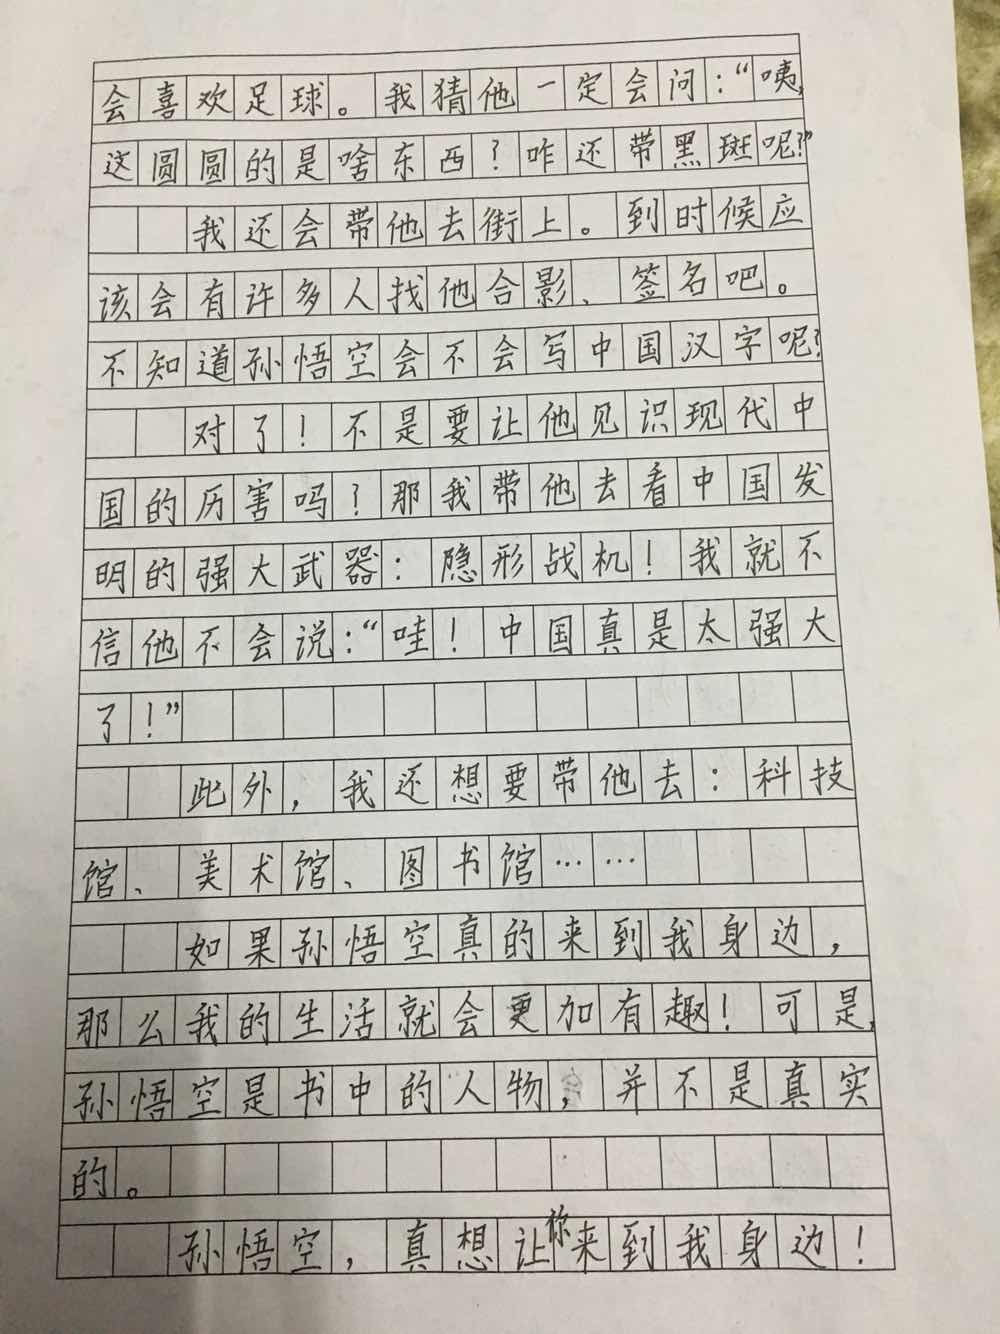 会喜欢足球。我猜他一定会问：“咦，
这圆圆的是啥东西？咋还带黑斑呢？”
我还会带他去街上。到时候应
该会有许多人找他合影、签名吧。
不知道孙悟空会不会写中国汉字呢？
对了！不是要让他见识现代中
国的历害吗？那我带他去看中国发
明的强大武器：隐形战机！我就不
信他不会说：“哇！中国真是太强大
了！”
此外，我还想要带他去：科技
馆、美术馆、图书馆……
如果孙悟空真的来到我身边，
那么我的生活就会更加有趣！可是，
孙悟空是书中的人物，并不是真实
的。
孙悟空，真想让你来到我身边！